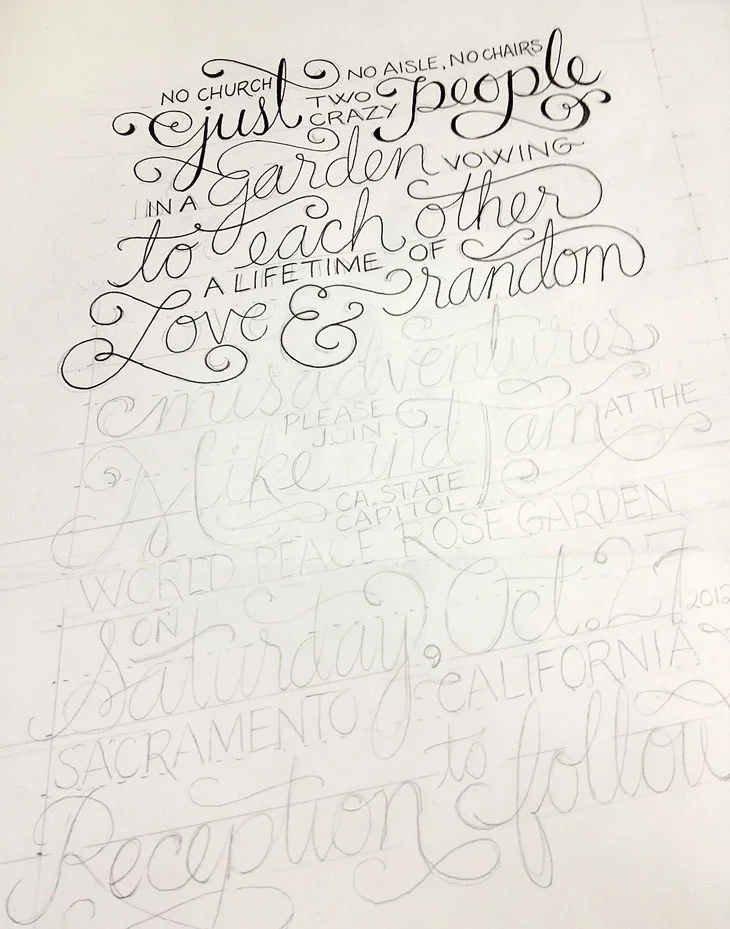 NO CHURCH NO AISLE, NO CHAIRS
just TWO CRAZY people
IN A garden VOWING
to each other
A LIFETIME OF
Love & random
misadventures
PLEASE JOIN
Mike and Tam AT THE
CA. STATE CAPITOL
WORLD PEACE ROSE GARDEN
ON
Saturday, Oct. 27 2012
SACRAMENTO CALIFORNIA
Reception to follow